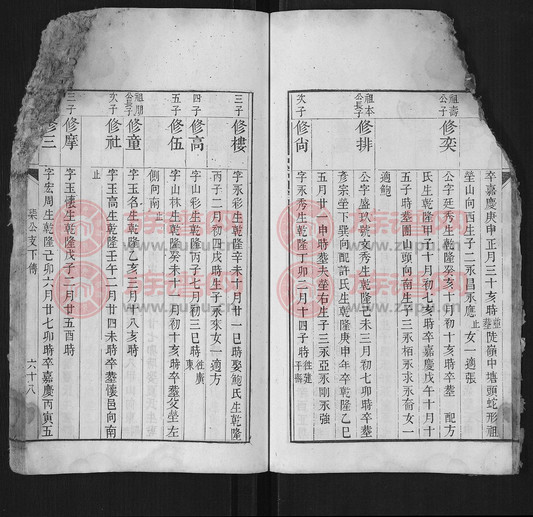 卒嘉慶庚申正月三十亥時葬陡嶺中塘頭蛇形祖
塋山向西生子二永昌永應止女一適張
祖壽公子 修奕 公字廷秀生乾隆癸亥十月初十亥時卒葬 配方
氏生乾隆甲子十月初七亥時卒嘉慶戊午十月十
五子時葬團山頭向南生子三永相永求永奮女一
適鮑
祖本公長子 修排 公字盛玖號文秀生乾隆己未三月初七卯時卒葬
彦宗塋下巽向配許氏生乾隆庚申年卒乾隆乙巳
五月廿一申時葬夫塋右生子三永亞永剛永強
次子 修尙 字永秀生乾隆丁卯二月十四子時往建平
三子 修樓 字永彩生乾隆辛未十月廿一巳時娶鮑氏生乾隆
丙子二月初四戌時生子永來女一適方
四子 修高 字山彩生乾隆丙子七月初三巳時往廣東
五子 修伍 字山林生乾隆癸未十一月初十亥時卒葬父塋左
側向南止
祖順公長子 修童 字玉名生乾隆乙亥三月十八亥時
次子 修社 字玉高生乾隆壬午二月廿四未時卒葬德邑向南
止
三子 修摩 字玉德生乾隆戊子二月廿五酉時
修三 字宏周生乾隆己卯六月廿七卯時卒嘉慶丙寅五
榮公支下傳 六十八